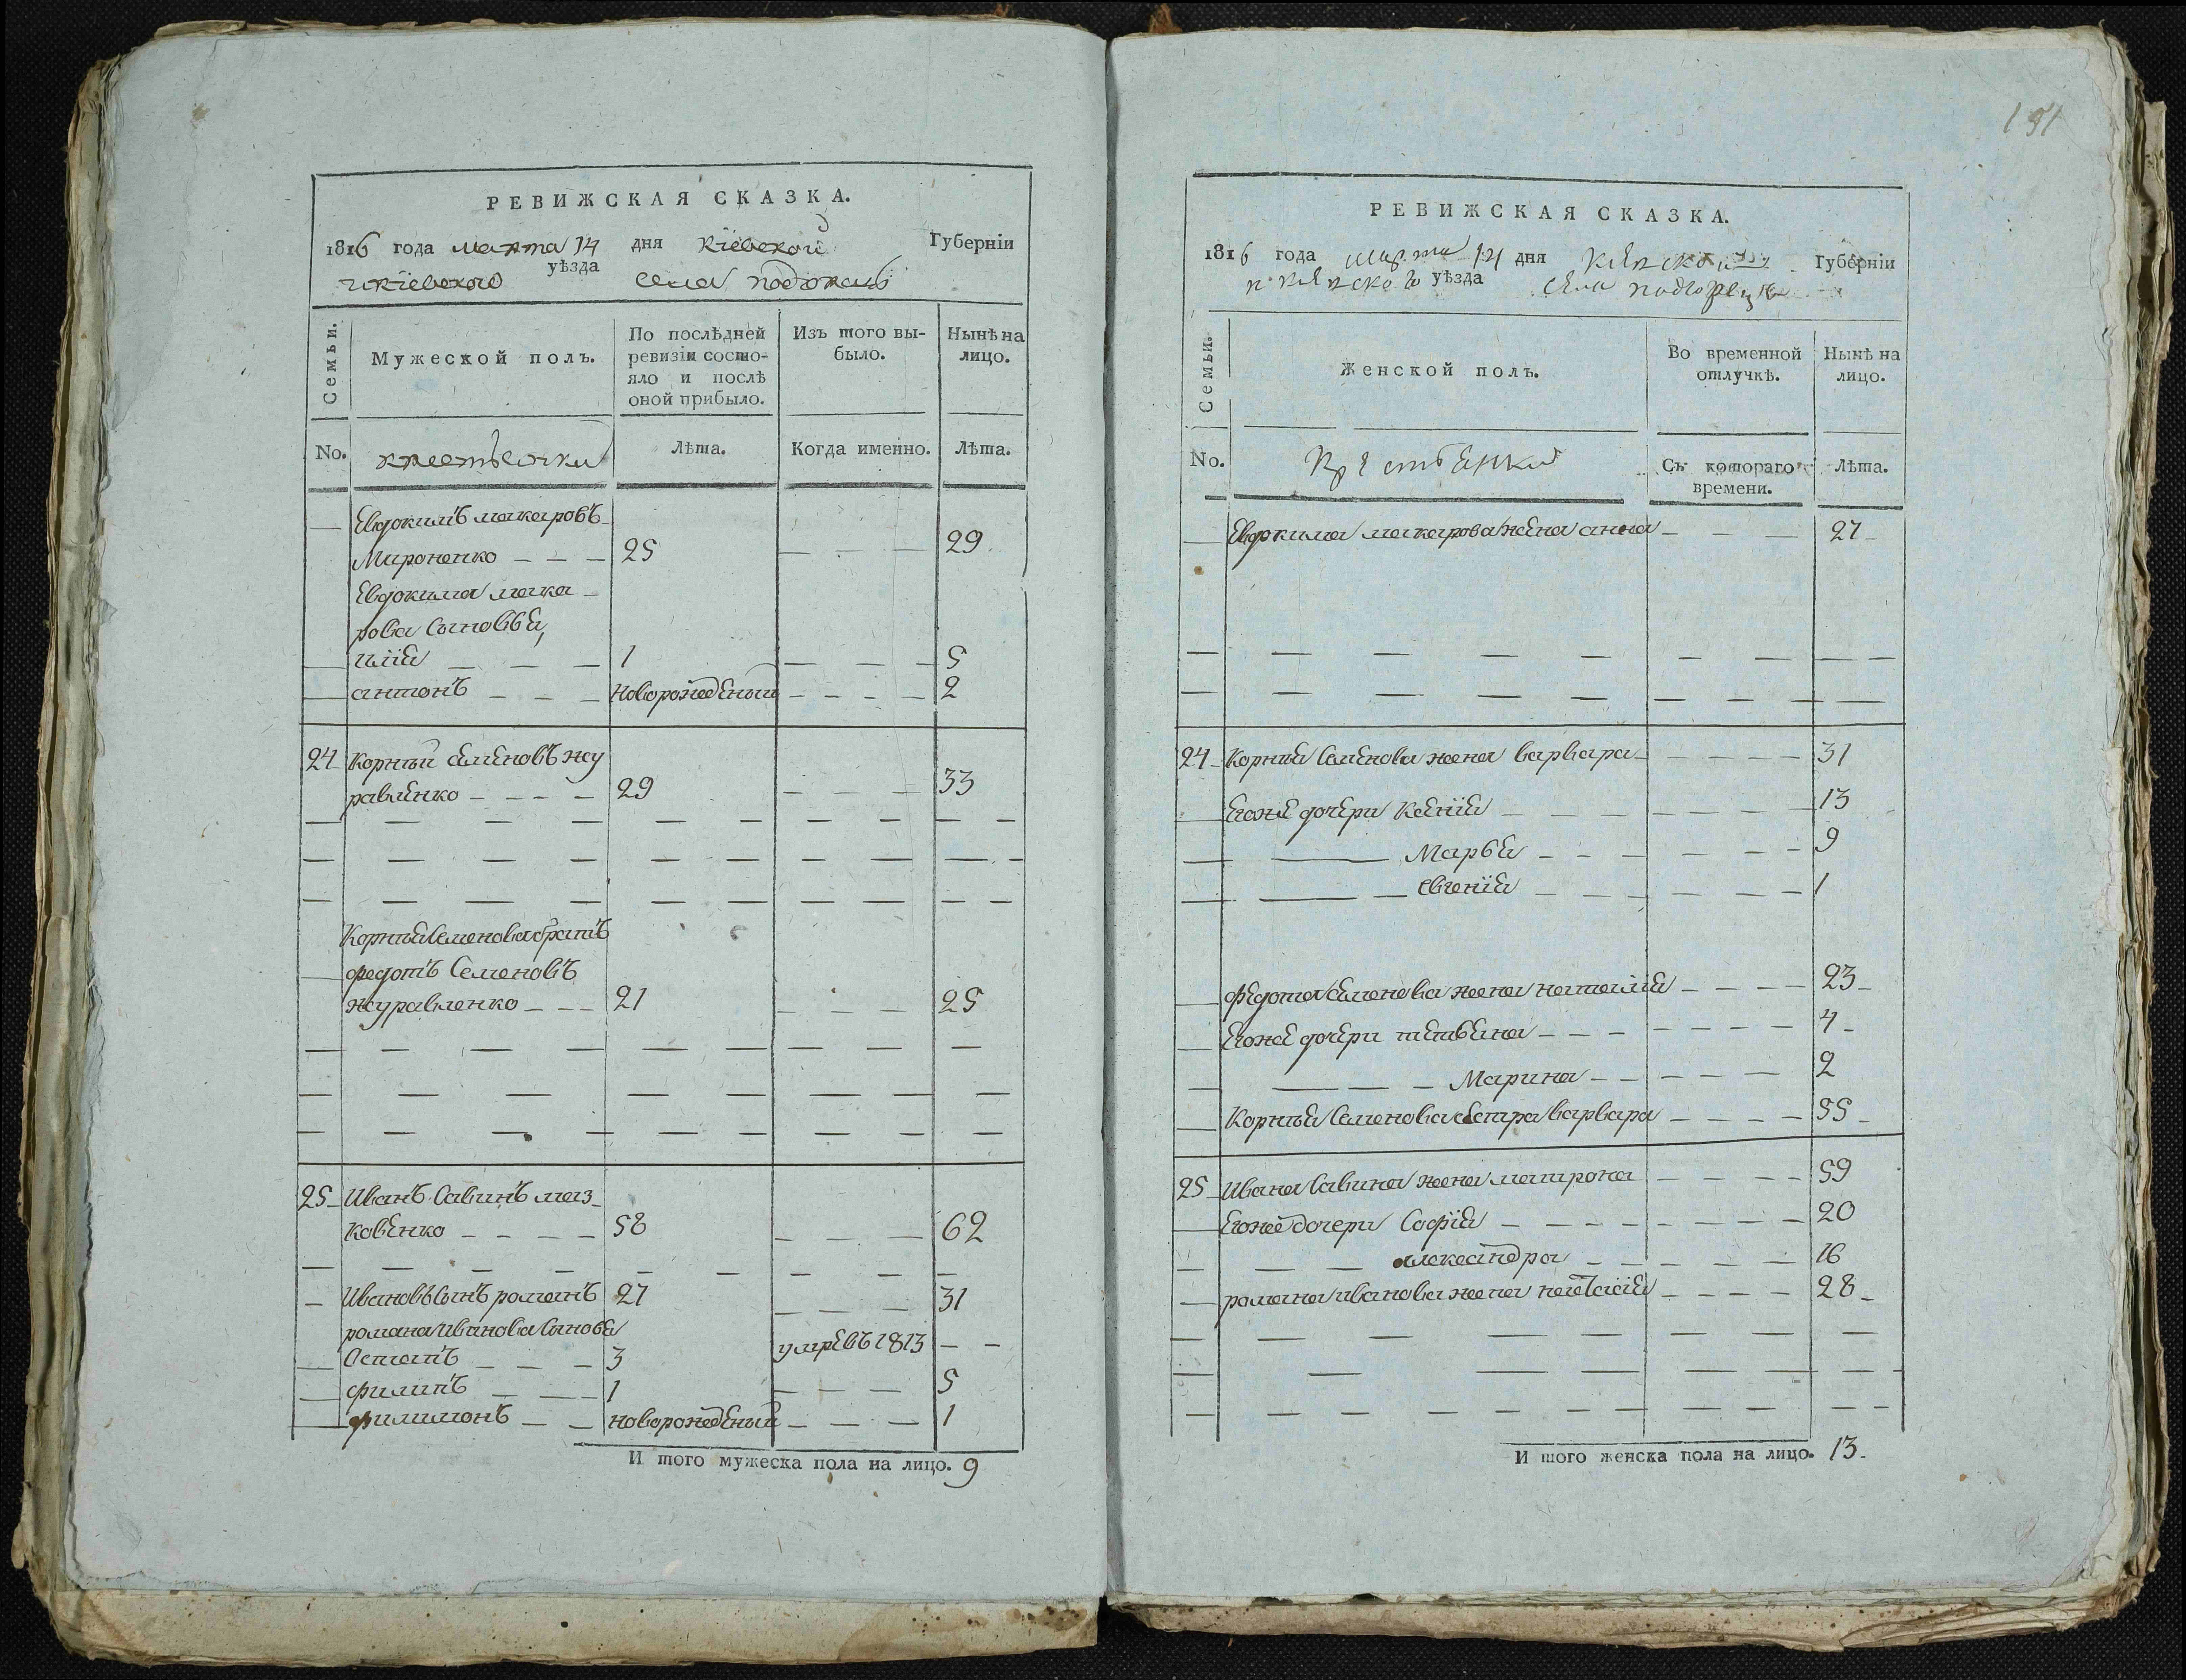 РЕВИЖСКАЯ СКАЗКА.
1816 года марта 14 дня Кіевской Губерніи
кіевского уѣзда села
Семьи.
Мужеской полъ.
По послѣдней ревизіи состояло и послѣ оной прибыло.
Изъ того выбыло.
Нынѣ на лицо.
No.
Лѣта.
Когда именно.
Лѣта.
Евдокимъ макаровъ
Мироненко 25 29
Евдокима мака
рова Сыновья,
илія 1 5
антонъ новорожденый 2
24 Корнѣй семеновъ жу
равленко 29 33
Корнѣя Семенова братъ
федотъ Семеновъ
журавленко 21 25
25 Иванъ Савинъ маз
ковенко 58 62
Ивановъ Сынъ романъ 27 31
романа иванова Сыновья
Остапъ 3 умре въ 1813
филипъ 1 5
филимонъ новорожденый 1
И того мужеска пола на лицо. 9
151
РЕВИЖСКАЯ СКАЗКА.
1816 года марта 14 дня Киевской Губерніи
киевского уѣзда села подгорецъ
Семьи.
Женской полъ.
Во временной отлучкѣ.
Нынѣ на лицо.
No.
Крестьянки
Съ котораго времени.
Лѣта.
Евдокима макарова жена анна 27
24 Корнѣя Семенова жена варвара 31
Егоже дочери Ксенія 13
Марья 9
евгенія 1
федота семенова жена наталія 23
Егоже дочери татьяна 4
Марина 2
Корнѣя Семенова сестра варвара 55
25 Ивана Савина жена матрона 59
Егоже дочери Софія 20
александра 16
романа иванова жена 28
И того женска пола на лицо. 13